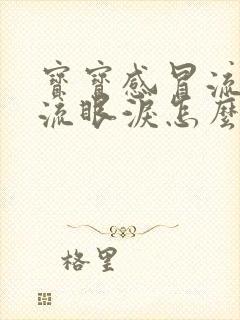 寶寶感冒流
流眼淚怎麼
格里